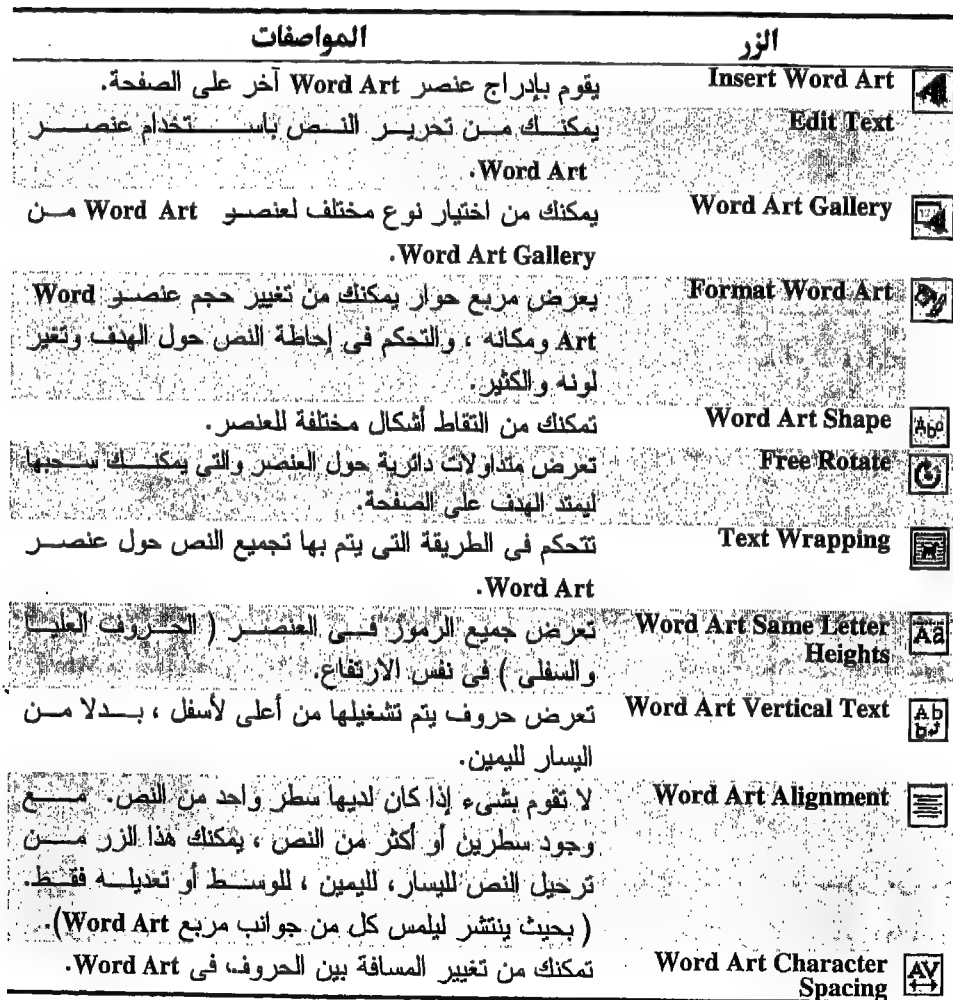 الزر المواصفات
Insert Word Art يقوم بإدراج عنصر Word Art آخر على الصفحة.
Edit Text يمكنك من تحرير النص باستخدام عنصر
Word Art.
Word Art Gallery يمكنك من اختيار نوع مختلف لعنصو Word Art من
Word Art Gallery.
Format Word Art يعرض مربع حوار يمكنك من تغيير حجم عنصو Word
Art ومكانه ، والتحكم فى إحاطة النص حول الهدف وتغير
لونه والكثير.
Word Art Shape تمكنك من التقاط أشكال مختلفة للعنصر.
Free Rotate تعرض متداولات دائرية حول العنصر والتى يمكنك سحبها
ليمتد الهدف على الصفحة.
Text Wrapping تتحكم فى الطريقة التى يتم بها تجميع النص حول عنصر
Word Art.
Word Art Same Letter تعرض جميع الرموز فى العنصر ( الحروف العليا
Heights والسفلى ) فى نفس الارتفاع.
Word Art Vertical Text تعرض حروف يتم تشغيلها من أعلى لأسفل ، بدلا من
اليسار لليمين.
Word Art Alignment لا تقوم بشىء إذا كان لديها سطر واحد من النص. مع
وجود سطرين أو أكثر من النص ، يمكنك هذا الزر من
ترحيل النص لليسار، لليمين ، للوسط أو تعديله فقط.
( بحيث ينتشر ليلمس كل من جوانب مربع Word Art).
Word Art Character تمكنك من تغيير المسافة بين الحروف فى Word Art.
Spacing